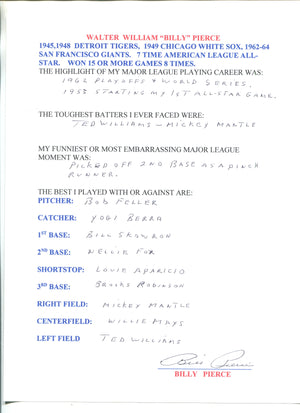 WALTER WILLIAM "BILLY" PIERCE
1945,1948 DETROIT TIGERS, 1949 CHICAGO WHITE SOX, 1962-64
SAN FRANCISCO GIANTS. 7 TIME AMERICAN LEAGUE ALL-
STAR. WON 15 OR MORE GAMES 8 TIMES.
THE HIGHLIGHT OF MY MAJOR LEAGUE PLAYING CAREER WAS:
1962 PLAYOFFS & WORLD SERIES,
1953 STARTING MY 1ST ALL-STAR GAME.
THE TOUGHEST BATTERS I EVER FACED WERE:
TED WILLIAMS - MICKEY MANTLE
MY FUNNIEST OR MOST EMBARRASSING MAJOR LEAGUE
MOMENT WAS:
PICKED OFF 2ND BASE AS A PINCH
RUNNER.
THE BEST I PLAYED WITH OR AGAINST ARE:
PITCHER: BOB FELLER
CATCHER: YOGI BERRA
1ST BASE: BILL SKOWRON
2ND BASE: NELLIE FOX
SHORTSTOP: LOUIE APARICIO
3RD BASE: BROOKS ROBINSON
RIGHT FIELD: MICKEY MANTLE
CENTERFIELD: WILLIE MAYS
LEFT FIELD TED WILLIAMS
Billy Pierce
BILLY PIERCE